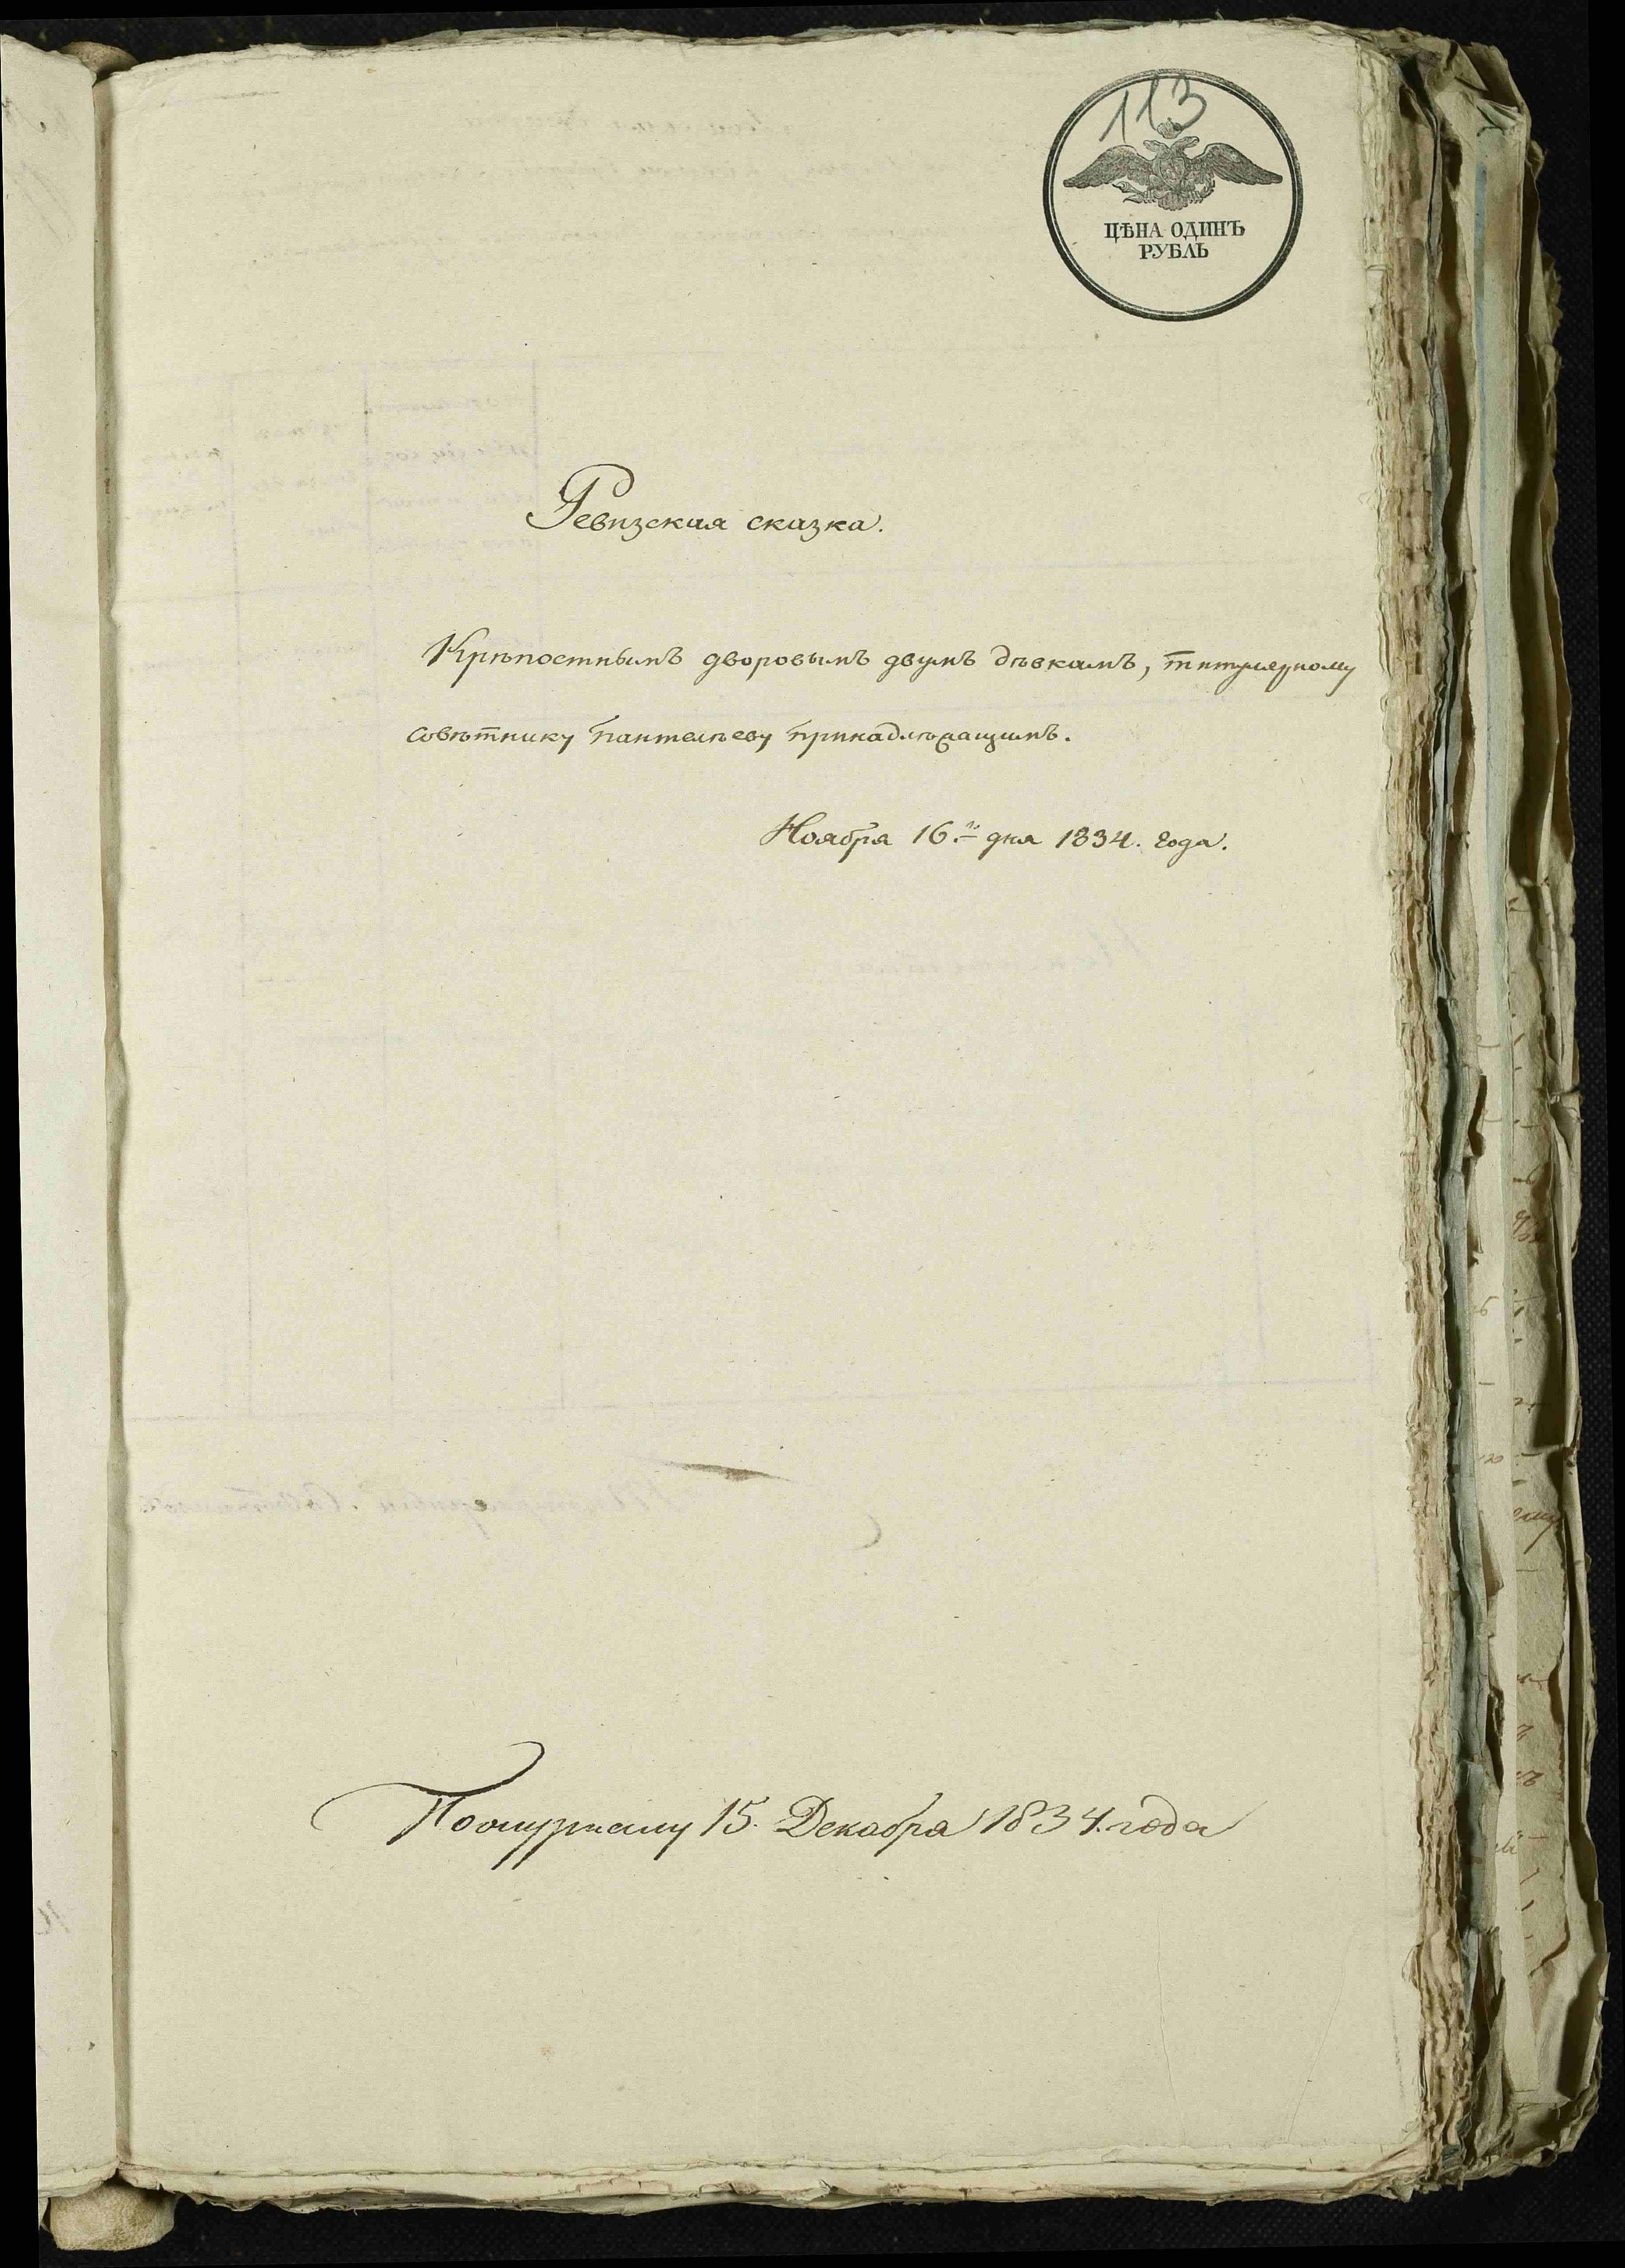 113
ЦѢНА ОДИНЪ
РУБЛЬ
Ревизская сказка.
Крѣпостнымъ дворовымъ двумъ дѣвкамъ, титулярному
совѣтнику Пантелѣеву принадлежащимъ.
Ноября 16.го дня 1834. года.
15. Декабря 1834. года